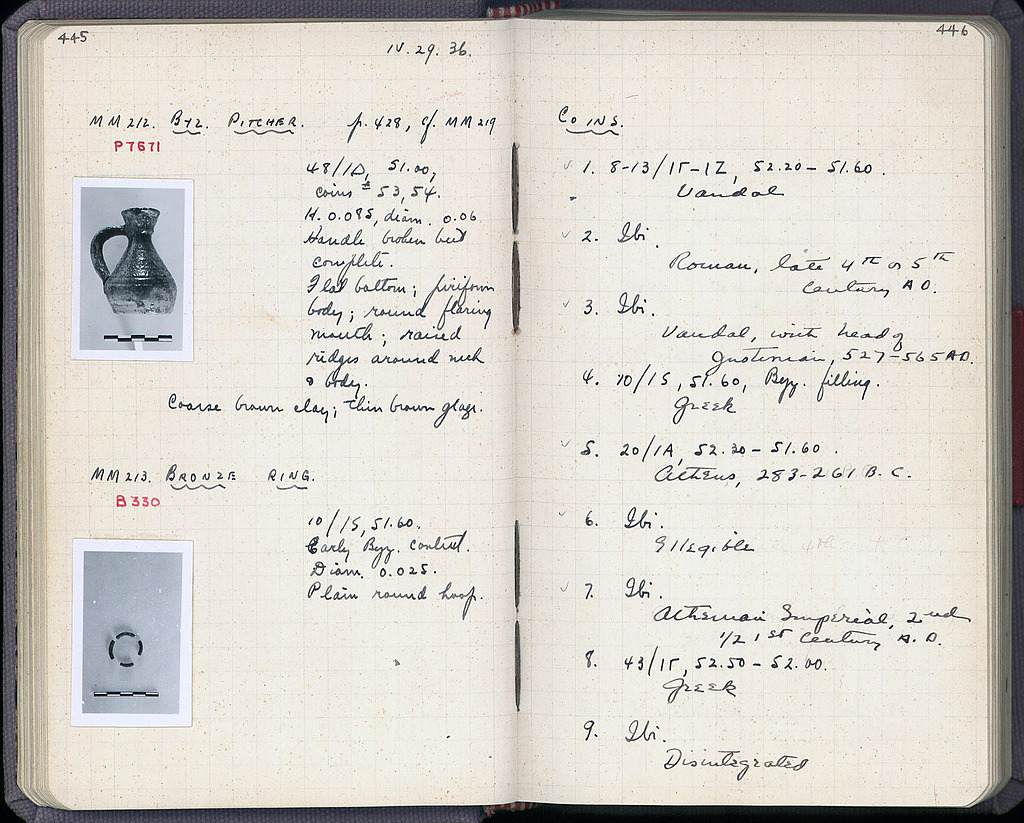 445
IV. 29. 36.
MM 212. BYZ. PITCHER. p. 428, cf. MM 219
P7671
48/ΙΔ, 51.00,
coins # 53, 54.
H. 0.085, diam. 0.06
Handle broken but
complete.
Flat bottom; piriform
body; round flaring
mouth; raised
ridges around neck
& body.
Coarse brown clay; thin brown glaze.
MM 213. BRONZE RING.
B 330
10/ΙΣ, 51.60.
Early Byz. context.
Diam. 0.025.
Plain round hoop.
446
COINS.
1. 8-13/ΙΓ-ΙΖ, 52.20 – 51.60.
Vandal
2. Ibi.
Roman, late 4th or 5th
Century A.D.
3. Ibi.
Vandal, with head of
Justinian, 527-565 A.D.
4. 10/ΙΣ, 51.60, Byz. filling.
Greek
5. 20/ΙΑ, 52.20 – 51.60.
Athens, 283-261 B.C.
6. Ibi.
Illegible
7. Ibi.
Athenian Imperial, 2nd
1/2 1st Century A.D.
8. 43/ΙΓ, 52.50 – 52.00.
Greek
9. Ibi.
Disintegrated